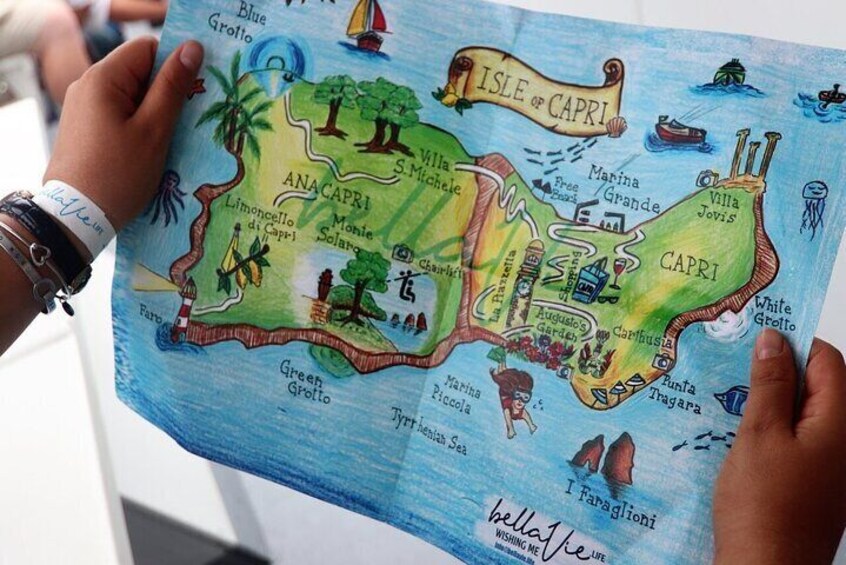 Blue
Grotto
ISLE OF CAPRI
Villa
S. Michele
ANACAPRI
Limoncello
di Capri
Monte
Solaro
Chairlift
Free
Beach
Marina
Grande
Villa
Jovis
CAPRI
La Piazzetta
Shopping
Augusto's
Garden
Carthusia
White
Grotto
Punta
Tragara
Faro
Green
Grotto
Marina
Piccola
Tyrrhenian Sea
I Faraglioni
bella Vie
WISHING ME
LIFE
bella Vie
LIFE
bella